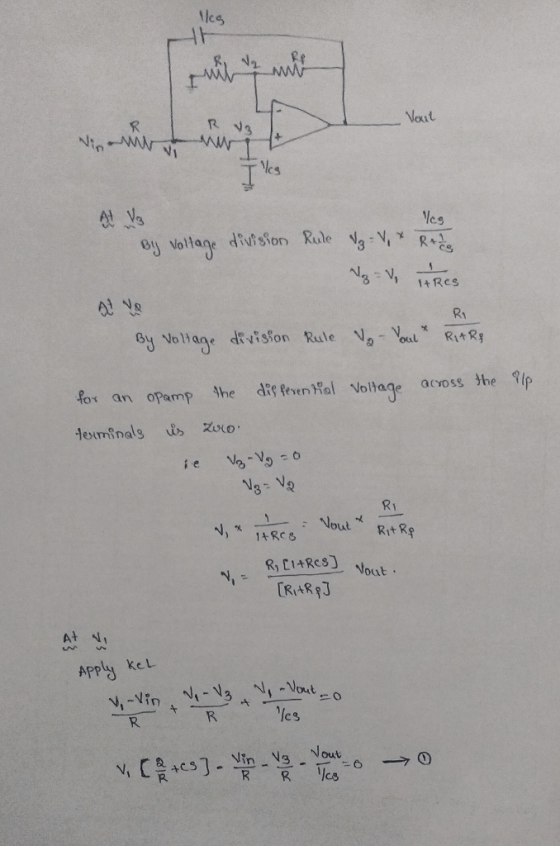 1/cs
R1 V2 Rf
-
Vin R V1 R V3 + Vout
1/cs
At V3
By Voltage division Rule V3 = V1 * (1/cs)/(R+1/cs)
V3 = V1 1/(1+Rcs)
At V2
By Voltage division Rule V2 = Vout * R1/(R1+Rf)
for an opamp the differential Voltage across the i/p
terminals is zero.
ie V3-V2 = 0
V3 = V2
V1 * 1/(1+Rcs) = Vout * R1/(R1+Rf)
V1 = R1[1+Rcs]/[R1+Rf] Vout.
At V1
Apply KCL
(V1-Vin)/R + (V1-V3)/R + (V1-Vout)/(1/cs) = 0
V1 [2/R + cs] - Vin/R - V3/R - Vout/(1/cs) = 0 → ①